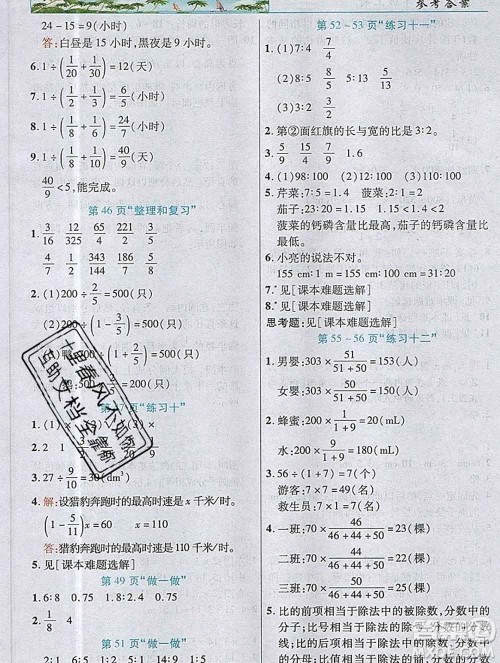 参考答案
24-15=9(小时)
答:白昼是 15 小时,黑夜是 9 小时。
6. 1÷(1/20+1/30)=12(天)
7. 1÷(1/2+1/3)=6/5(小时)
8. 1÷(1/10+1/9)=90/19(小时)
9. 1÷(1/8+1/10)=40/9(天)
40/9<5,能完成。
第 46 页“整理和复习”
1. 3/16 145/325 66/225 221/4
4/7 187/4 2/3 6/55
2. (1)200÷2/5=500(只)
(2)200÷(1-3/5)=500(只)
÷(1+2/5)=500(只)
=500(只)
第 47 页“练习十”
3. 27÷9/10=30(dm³)
4. 解:设猎豹奔跑时的最高时速是 x 千米/时。
(1-5/11)x=60 x=110
答:猎豹奔跑时的最高时速是 110 千米/时。
5. 见[课本难题选解]
第 49 页“做一做”
1. 6:8 0.75 1.8:2.4 0.75
2. 1/8 4
第 51 页“做一做”
第 52~53 页“练习十一”
1. (1)7:4 7/4
(2)8:5 8/5 5:13 5/13
(3)2:1
2. 第②面红旗的长与宽的比是 3:2。
3. 5/9 15/4 4/3 1.6
4. (1)98:100 (2)12:100 (3)110:100
5. 芹菜:7:5=1.4 菠菜:2:1=2
茄子:24:23=24/23
菠菜的钙磷含量比最高,茄子的钙磷含量比
最低。
6. 小亮的说法不对。
155 cm:1 m=155 cm:100 cm=31:20
7. 见[课本难题选解]
8. 见[课本难题选解]
思考题:见[课本难题选解]
第 55~56 页“练习十二”
1. 男婴:303×51/(51+50)=153(人)
女婴:303×50/(51+50)=150(人)
2. 蜂蜜:200×1/(1+9)=20(mL)
水:200×9/(1+9)=180(mL)
3. 56÷(1+7)=7(名)
游客:7×7=49(名)
救生员:7×1=7(名)
4. 一班:70×46/(46+44+50)=23(棵)
二班:70×44/(46+44+50)=22(棵)
三班:70×50/(46+44+50)=25(棵)
5. 比的前项相当于除法中的被除数,分数中的
分子;比号相当于除法中的除号,分数中的分
数线;比的后项相当于除法中的除数,分数中
十里春风不如你
互助文档全靠新